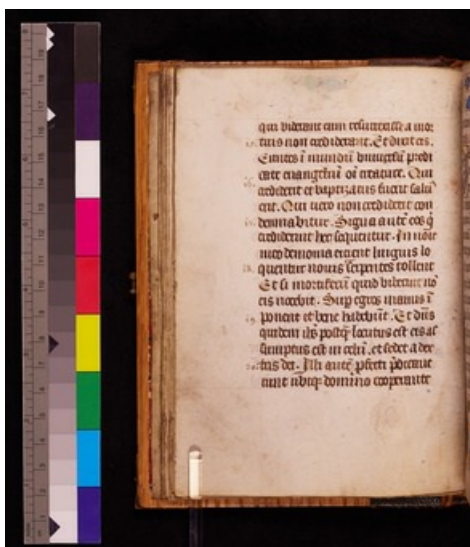 qui viderant eum resurrexisse a mor
tuis non crediderant. Et dixit eis.
Euntes ī mundū universū predi
cate evangeliū oī creature. Qui
crediderit et baptizatus fuerit salu
erit. Qui vero non crediderit con
demnabitur. Signa autē eos q̄
crediderint hec sequentur. In noīe
meo demonia eicient linguis lo
quentur novis serpentes tollent
Et si mortiferū quid biberint nō
eis nocebit. Sup egros manus ī
ponent et bene habebūt. Et dn̄s
quidem ihs postq̄ locutus est eis as
sumptus est in celū. et sedet a dex
tris dei. Illi autē pfecti pdicave
runt ubiq̄ domino cooperante